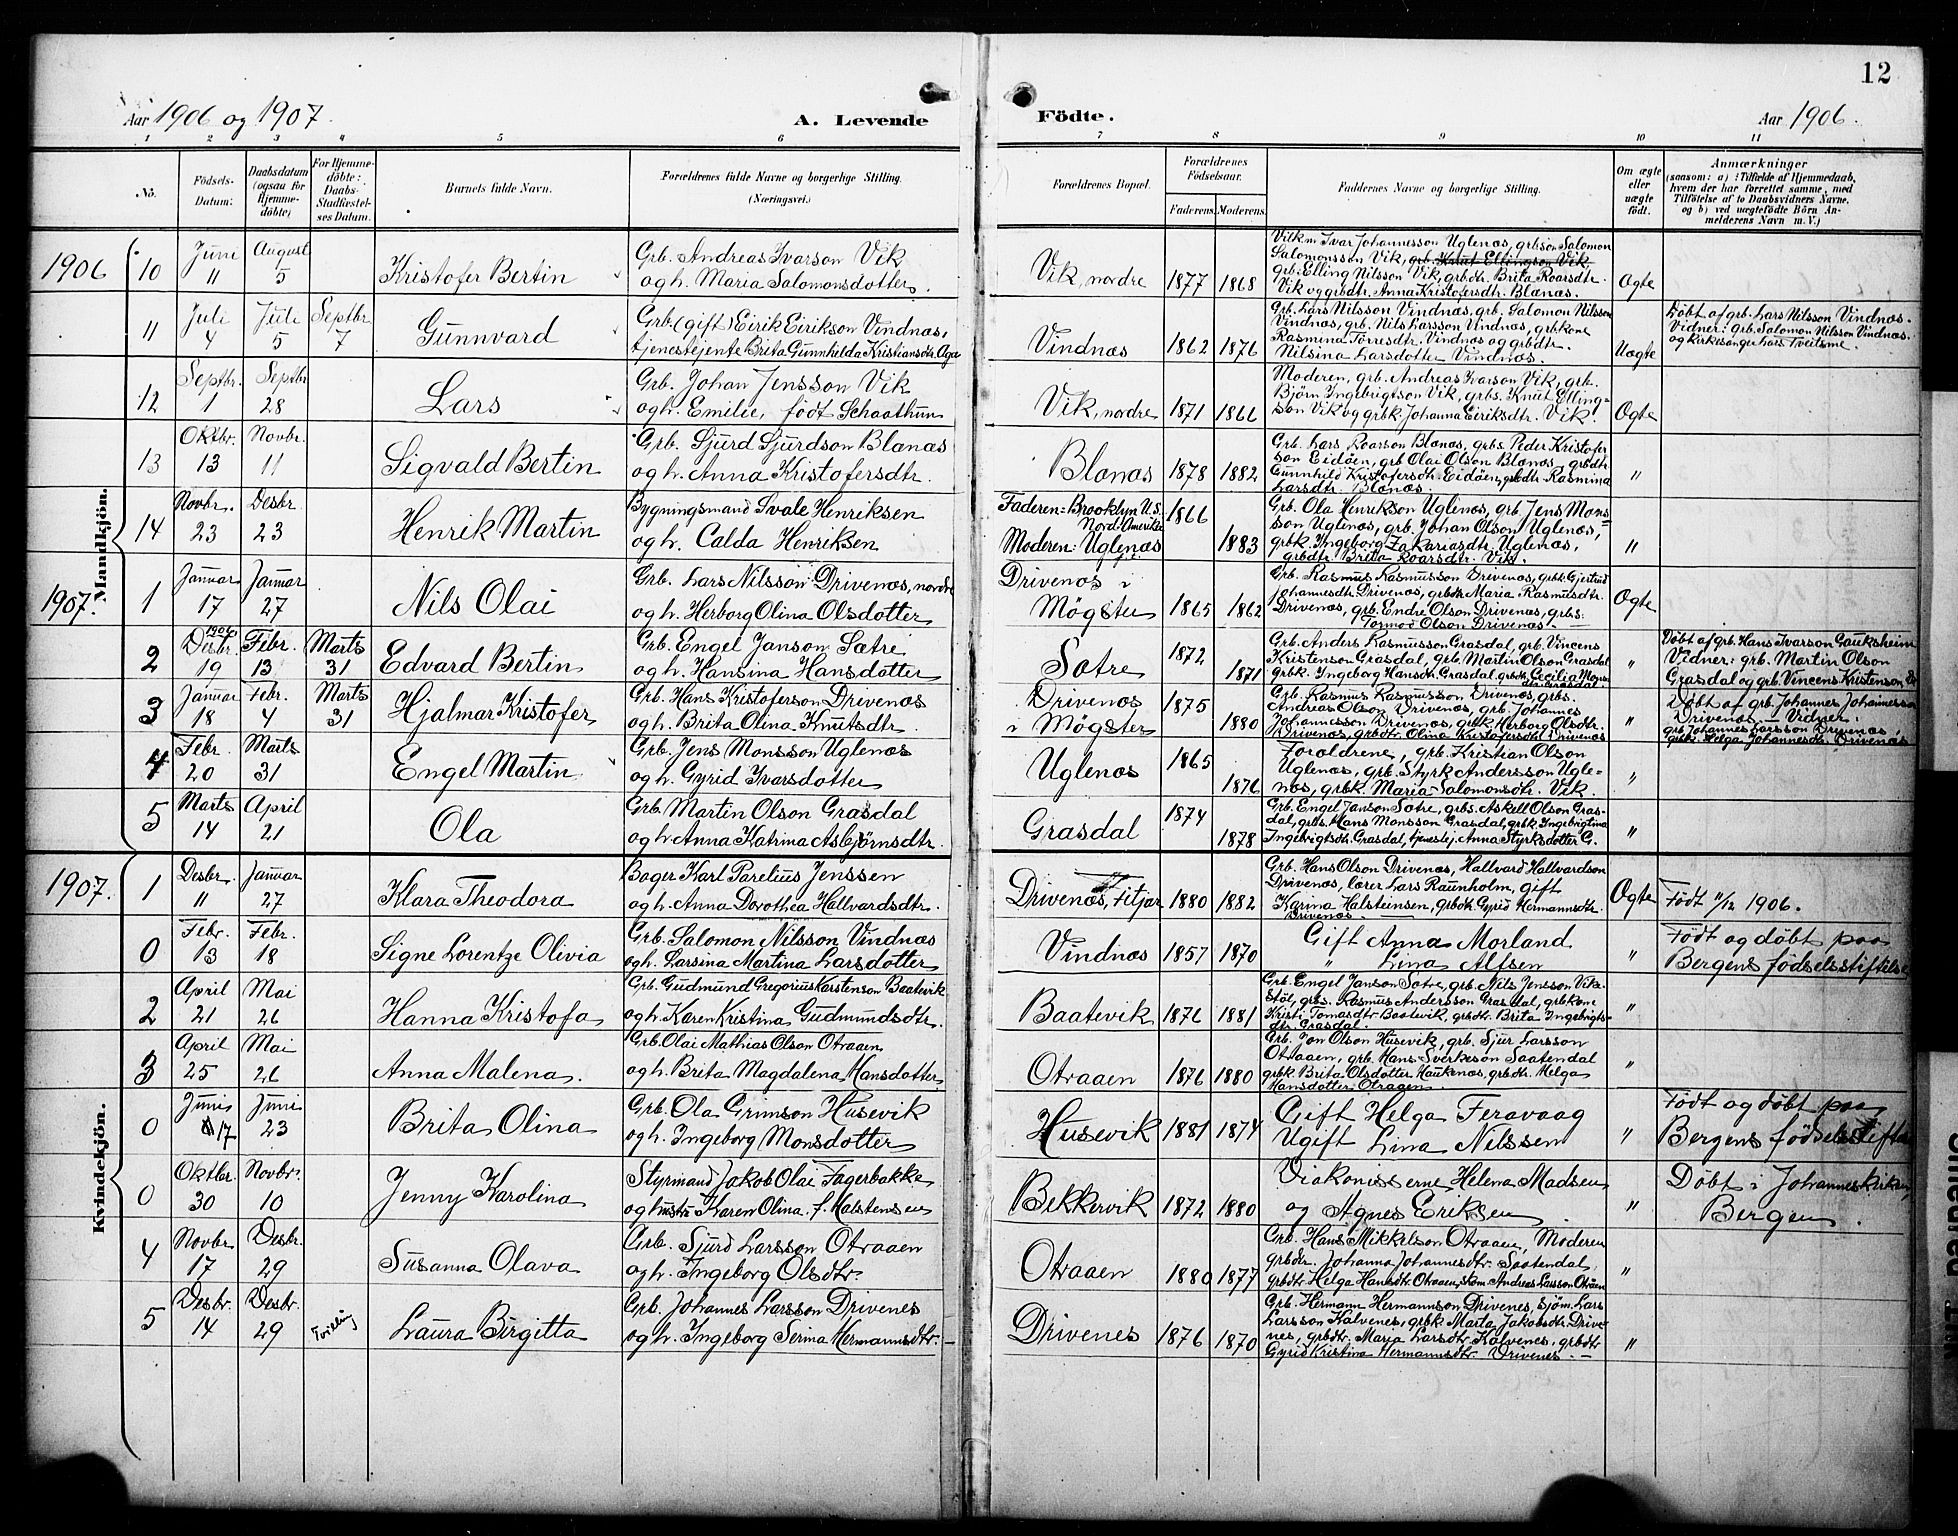 12
Aar 1906 og 1907. A. Levende Födte. Aar 1906.
1 2 3 4 5 6 7 8 9 10 11
No. Födsels-Datum. Daabsdatum (ogsaa for Hjemmedöbte) For Hjemmedöbte: Daabs-Stadfæstelses Datum. Barnets fulde Navn. Forældrenes fulde Navne og borgerlige Stilling. (Næringsvei.) Forældrenes Bopæl. Forældrenes Födselsaar. Faderens. Moderens. Faddernes Navne og borgerlige Stilling. Om ægte eller uægte födt. Anmærkninger (saasom: a) i Tilfælde af Hjemmedaab, hvem der har forrettet samme, med Tilföielse af to Daabsvidners Navne, og b) ved uægtefödte Börn Anmelderens Navn m. V.)
Mandkjön.
1906 10 Juni 11 August 5 Kristofer Bertin Grb. Andreas Ivarson Vik
og h. Maria Salomonsdotter. Vik, nordre 1877 1868
Vik m Ivar Johannesson Uglenæs, grbson Salomon
Salomonsson Vik, grb. Knut Ellingson Vik,
grb. Elling Nilsson Vik, grbdtr. Brita Roarsdtr.
Vik og grbdtr. Anna Kristofersdtr. Blænæs. Ægte
11 Juli 4 Juli 5 Septbr 7 Gunnvard Grb. (gift) Eirik Eirikson Vindnæs,
tjenestejente Brita Gunnhilda Kristiansdtr. Aga Vindnæs 1862 1876
Grb. Lars Nilsson Vindnæs, grb. Salomon Nilsson
Vindnæs, grb. Nils Larsson Vindnæs, grbkone
Rasmina Torresdtr. Vindnæs og grbdtr.
Nilsina Larsdotter Vindnæs. Uægte
Döbt af grb. Lars Nilsson Vindnæs.
Vidner: grb. Salomon Nilsson Vindnæs
og Kirkesanger Lars Tveitsme.
12 Septbr. 1 Septbr 28 Lars Grb. Johan Jensson Vik
og h. Emilie, födt Schaathun Vik, nordre 1871 1866
Moderen, grb. Andreas Ivarson Vik, grb.
Bjørn Ingebrigtson Vik, grbs. Knut Elling-
son Vik og grbk. Johanna Eiriksdtr. Vik. Ægte
13 Oktbr. 13 Novbr. 11 Sigvald Bertin Grb. Sjurd Sjurdson Blænæs
og h. Anna Kristofersdtr. Blænæs 1878 1882
Grb. Lars Roarson Blænæs, grbs. Peder Kristofer
son Eidöen, grb Olai Olson Blænæs, grbdtr
Gunnhild Kristofersdtr. Eidöen, grbdtr Rasmina
Larsdtr. Blænæs. "
14 Novbr. 23 Desbr. 23 Henrik Martin Bygningsmand Svale Henriksen
og h. Calda Henriksen Faderen = Brooklyn U.S.
Nord-Amerika 1866
Moderen: Uglenæs 1883
Grb. Ola Henrikson Uglenæs, grb. Jens Mons=
son Uglenæs, grb. Johan Olson Uglenæs,
grbk. Ingeborg Zakariasdtr. Uglenæs,
grbdtr. Brita Roarsdtr. Vik. "
1907. 1 Januar 17 Januar 27 Nils Olai Grb. Lars Nilsson Drivenæs, nordre
og h. Herborg Olina Olsdotter Drivenæs i
Møgster 1865 1862
Grb. Rasmus Rasmusson Drivenæs, grbk. Gjertrud
Johannesdtr Drivenæs, grbdtr. Maria Rasmusdtr.
Drivenæs, grb. Endre Olson Drivenæs, grbs.
Tormod Olson Drivenæs. Ægte
2 1906 Desbr. 19 Febr. 13 Marts 31 Edvard Bertin Grb. Engel Janson Sætre
og h. Hansina Hansdotter Sætre 1872 1871
Grb. Anders Rasmusson Grasdal, grb. Vincens
Kristenson Grasdal, grb. Martin Olson Grasdal
Grbk. Ingeborg Hansdtr. Grasdal, grbdtr. Cecilia Mons
dtr. Grasdal "
Döbt af grb. Hans Ivarson Gauksheim
Vidner: grb. Martin Olson
Grasdal og grb. Vincens Kristenson
3 Januar 18 Febr. 4 Marts 31 Hjalmar Kristofer Grb. Hans Kristoferson Drivenæs
og h. Brita Olina Knutsdtr. Drivenæs
i Møgster 1875 1880
Grb. Rasmus Rasmusson Drivenæs, grbs
Andreas Olson Drivenæs, grb. Johannes
Johannesson Drivenæs, grbk Herborg Olsdtr.
Drivenæs, grbdtr Olina Kristofersdtr Drivenæs "
Döbt af grb. Johannes Johannesson
Drivenæs. — Vidner:
grb. Johannes Larsson Drivenæs,
grbk. Helga Johannesdtr. Drivenæs
4 Febr. 20 Marts 31 Engel Martin Grb. Jens Monsson Uglenæs
og h. Gyrid Ivarsdotter Uglenæs 1865 1876
Foræld­rene, grb. Kristian Olson
Uglenæs, grb. Styrk Andersson Ugle=
næs, grbk. Maria Salomonsdtr. Vik. "
5 Marts 14 April 21 Ola Grb. Martin Olson Grasdal
og h. Anna Katrina Asbjörnsdtr. Grasdal 1874 1878
Grb. Engel Janson Sætre, grbs. Askell Olson Gras-
dal, grbs. Hans Monsson Grasdal, grbk. Ingebrigtina
Ingebrigtsdtr. Grasdal, tjenestej. Anna Styrksdotter G. "
Kvindekjön.
1907. 1 Desbr. 11 Januar 27 Klara Theodora Bager Karl Parelius Jenssen
og h. Anna Dorothea Hallvardsdtr. Drivenæs, Fitjar 1880 1882
Grb. Hans Olson Drivenæs, Hallvard Hallvardson
Drivenæs, lærer Lars Raunholm, gift
Karina Halsteinsen, grbdtr. Gyrid Hermannsdtr.
Drivenæs. — Ægte Födt 11/12 1906.
0 Febr. 13 Febr. 18 Signe Lorentze Olivia Grb. Salomon Nilsson Vindnæs
og h. Larsina Martina Larsdotter Vindnæs 1857 1870
Gift Anna Morland
" Lina Alfsen "
Födt og döbt paa
Bergens födselsstiftelse
2 April 21 Mai 26 Hanna Kristofa Grb. Gudmund Gregorius Karstenson Baatevik
og h. Karen Kristina Gudmundsdtr. Baatevik 1876 1881
Grb. Engel Janson Sætre, grb. Nils Jensson Vik-
stöl, grbs. Rasmus Andersson Grasdal, grbkone
Kristi Tomasdtr Baatevik, grbdtr. Brita Ingebrigts-
dtr. Grasdal. "
3 April 25 Mai 26 Anna Malena. Grb. Olai Mathias Olson Otraaen
og h. Brita Magdalena Hansdotter Otraaen 1876 1880
Grb. Jon Olson Husevik, grb. Sjur Larsson
Otraaen, grb. Hans Sverkeson Saatendal
grbk. Brita Olsdotter Haukenæs, grbdtr. Helga
Hansdotter Otraaen. "
0 Juni 17 Juni 23 Brita Olina Grb. Ola Grimson Husevik
og h. Ingeborg Monsdotter Husevik 1881 1874
Gift Helga Feravaag
Ugift Lina Nilssen "
Födt og döbt paa
Bergens födselsstift
0 Oktbr. 30 Novbr. 10 Jenny Karolina Styrmand Jakob Olai Fagerbakke
og hustr Karen Olina f. Halstensen Bekkervik 1872 1880
Diakonisserne Helena Madsen
og Agnes Eriksen "
Döbt i Johanneskirken,
Bergen.
4 Novbr 17 Desbr. 29 Susanna Olava Grb. Sjurd Larsson Otraaen
og h. Ingeborg Olsdtr. Otraaen 1880 1877
Grb. Hans Mikkelson Otraaen, Moderen
grbdtr. Johanna Johannesdtr. Saatendal,
grbdtr Helga Hansdtr Otraaen, skom. Andreas Larsson Otraaen "
5 Desbr. 14 Desbr. 29 Tvilling Laura Birgitta Grb. Johannes Larsson Drivenes
og h. Ingeborg Serina Hermannsdtr. — Drivenes 1876 1870
Grb. Hermann Hermannson Drivenes, sjöm. Lars
Larsson Kalvenes, grbk Marta Jakobsdtr. Drive-
nes, grbdtr. Maria Larsdtr. Kalvenes, grbdtr
Gyrid Kristina Hermannsdtr. Drivenes. — "